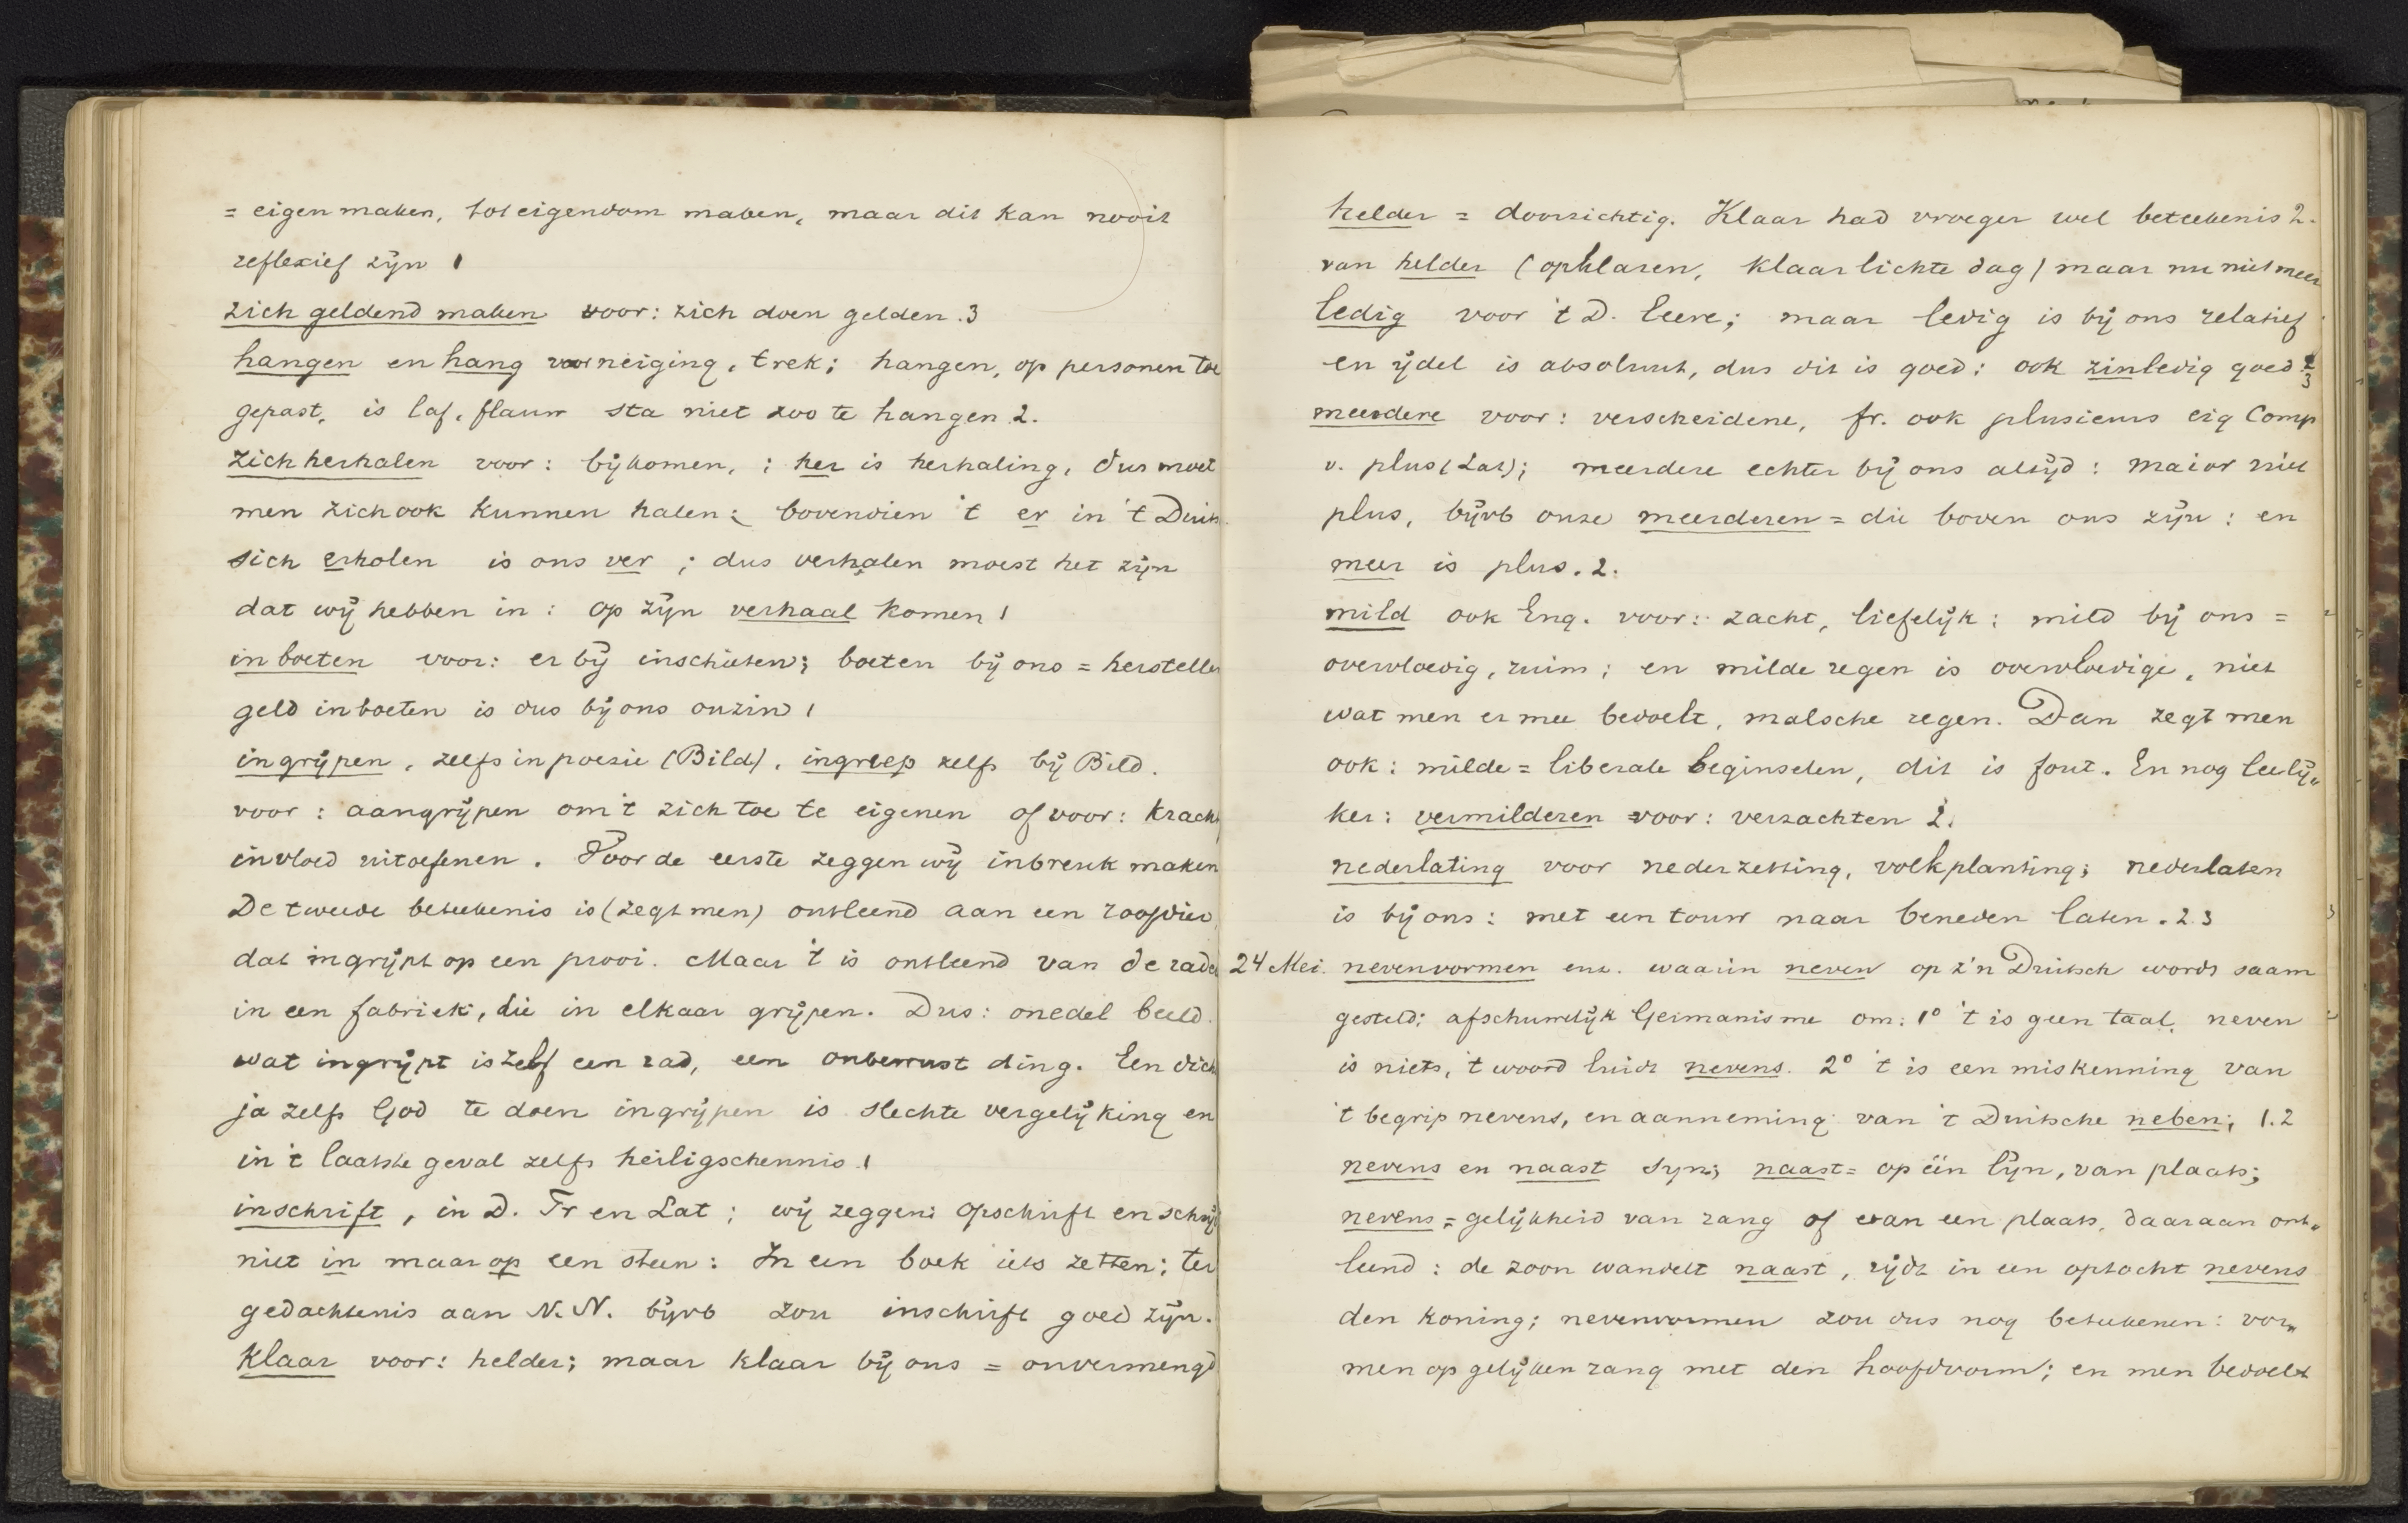 = eigen maken, tot eigendom maken, maar dit kan nooit
reflexief zijn 1
zich geldend maken voor: zich doen gelden. 3
hangen en hang voor neiging, trek; hangen, op personen toe
gepast, is laf, flauw sta niet zoo te hangen 2.
zich herhalen voor: bijkomen, ; her is herhaling, dus moet
men zich ook kunnen halen; bovendien 't er in 't Duits
sich erholen is ons ver ; dus verhalen moest het zijn
dat wij hebben in : op zijn verhaal komen 1
inboeten voor: er bij inschieten; boeten bij ons = herstellen
geld inboeten is dus bij ons onzin 1
ingrijpen, zelfs in poezie (Bild), ingreep zelfs bij Bild.
voor : aangrijpen om 't zich toe te eigenen of voor: kracht
invloed uitoefenen. Voor de eerste zeggen wij inbreuk maken
De tweede beteekenis is (zegt men) ontleend aan een roofdier,
dat ingrijpt op een prooi. Maar 't is ontleend van de rade
in een fabriek, die in elkaar grijpen. Dus: onedel beeld.
wat ingrijpt is zelf een rad, een onbewust ding. Een dich
ja zelfs God te doen ingrijpen is slechte vergelijking en
in 't laatste geval zelfs heiligschennis 1
inschrift, in D. Fr en Lat ; wij zeggen: opschrift en schrijf
niet in maar op een steen: In een boek iets zetten: ter
gedachtenis aan N.N. bijvb zou inschrift goed zijn.
klaar voor: helder; maar klaar bij ons = onvermengd
helder = doorzichtig. Klaar had vroeger wel beteekenis 2.
van helder (opklaren, klaarlichte dag) maar nu niet meer
ledig voor 't D. leere; maar ledig is bij ons relatief
en ijdel is absoluut, dus dit is goed: ook zinledig goed 3
meerdere voor: verscheidene, fr. ook plusieurs eig Comp
v. plus (Lat); meerdere echter bij ons altijd: maior niet
plus, bijvb onze meerderen = die boven ons zijn: en
meer is plus. 2.
mild ook Eng. voor: zacht, liefelijk: mild bij ons =
overvloedig, ruim; en milde regen is overvloedige, niet
wat men er mee bedoelt, malsche regen. Dan zegt men
ook: milde = liberale beginselen, dit is fout. En nog leelij"
ker: vermilderen voor: verzachten 2.
nederlating voor nederzetting, volkplanting; nederlaten
is bij ons: met een touw naar beneden laten. 2 3
24 Mei. nevenvormen enz. waarin neven op z'n Duitsch wordt saam
gesteld; afschuwelijk Germanisme om: 1° 't is geen taal, neven
is niets, 't woord luidt nevens. 2° 't is een miskenning van
't begrip nevens, en aanneming van 't Duitsche neben; 1.2
nevens en naast syn; naast = op één lijn, van plaats;
nevens = gelijkheid van rang of van een plaats, daaraan ont"
leend : de zoon wandelt naast, rijdt in een optocht nevens
den koning; nevenvormen zou dus nog beteekenen: vor"
men op gelijken rang met den hoofdvorm; en men bedoelt